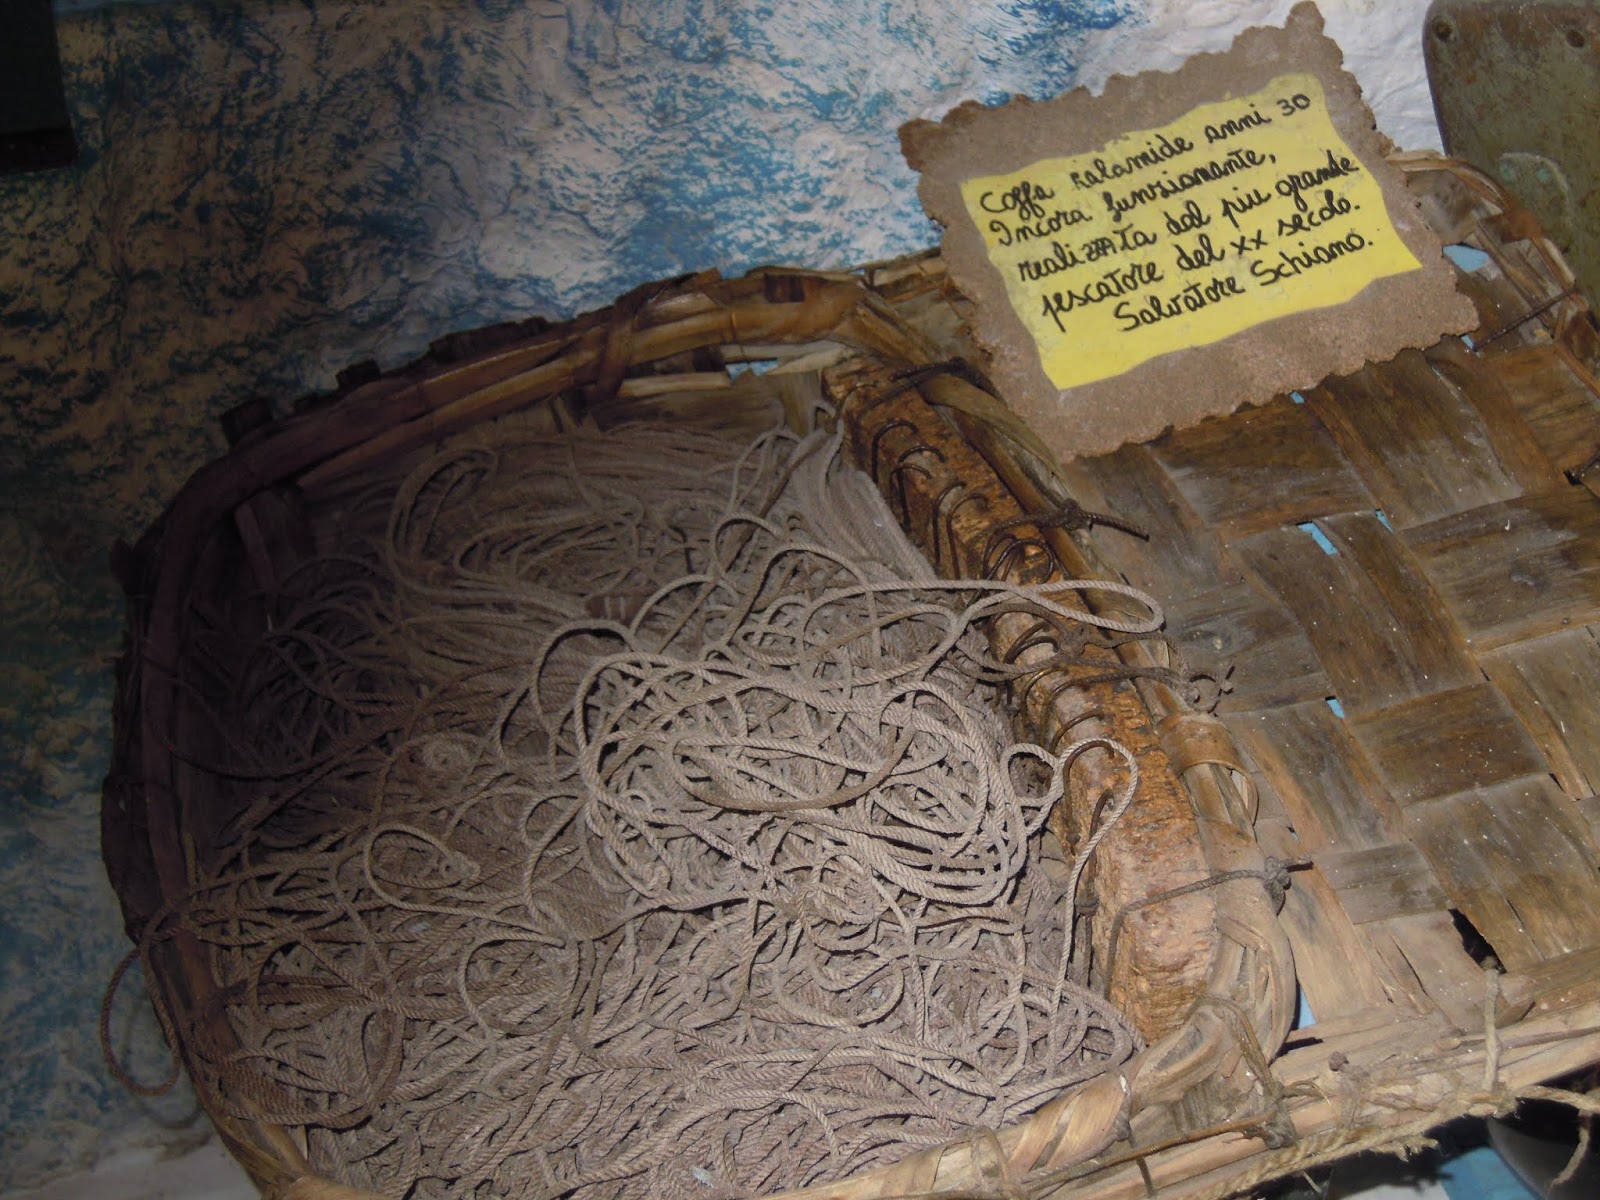 Coffa ralamide anni 30
Incora funzionante,
realizzata dal piu grande
pescatore del xx secolo.
Salvatore Schiano.